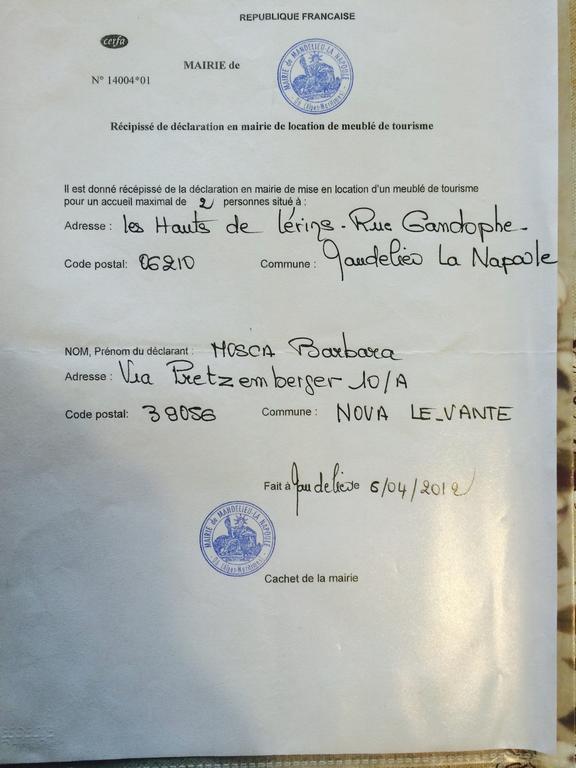 REPUBLIQUE FRANCAISE
cerfa
MAIRIE de
MAIRIE de MANDELIEU-LA NAPOULE
06 (Alpes-Maritimes)
N° 14004*01
Récipissé de déclaration en mairie de location de meublé de tourisme
Il est donné récépissé de la déclaration en mairie de mise en location d'un meublé de tourisme
pour un accueil maximal de 2 personnes situé à :
Adresse : les Hauts de Lérins - Rue Gandophe -
Code postal: 06210 Commune : Mandelieu La Napoule
NOM, Prénom du déclarant : MOSCA Barbara
Adresse : Via Pretzemberger 10/A
Code postal: 39056 Commune : NOVA LEVANTE
Fait à Mandelieu le 6/04/2012
MAIRIE de MANDELIEU-LA NAPOULE
06 (Alpes-Maritimes)
Cachet de la mairie